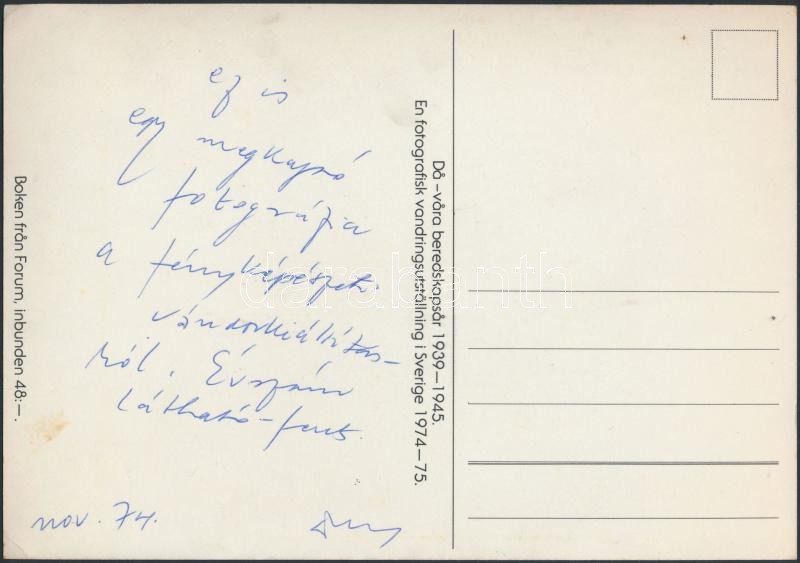 ez is
egy megkapó
fotográfia
a fényképészeti
vándorkiállítás-
ról. Évszám
látható-fent.
nov. 74.
Då – våra beredskapsår 1939–1945.
En fotografisk vandringsutställning i Sverige 1974–75.
Boken från Forum, inbunden 48:–.
darabanth